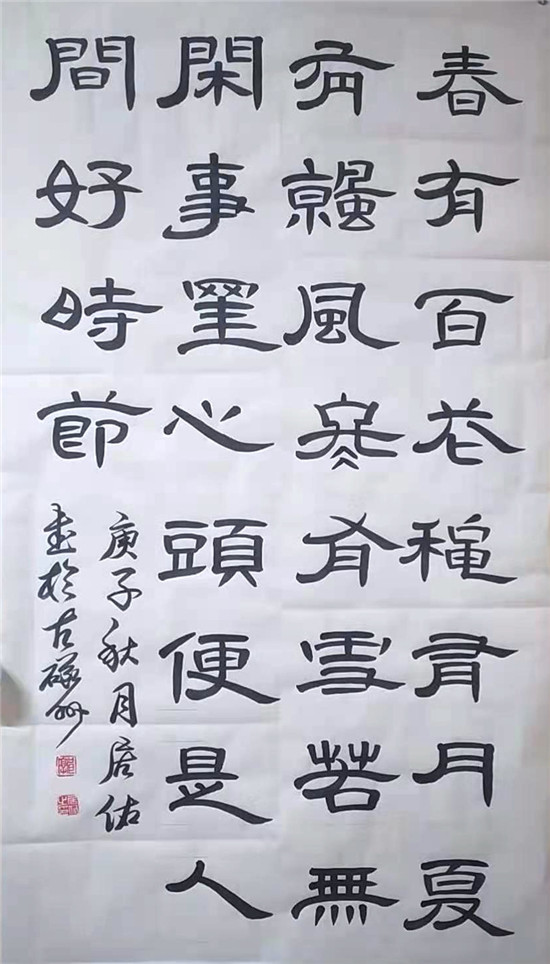 春有百花穐有月夏
有風冬有雪若無
閑事罣心頭便是人
間好時節
庚子秋月佑
書於古州